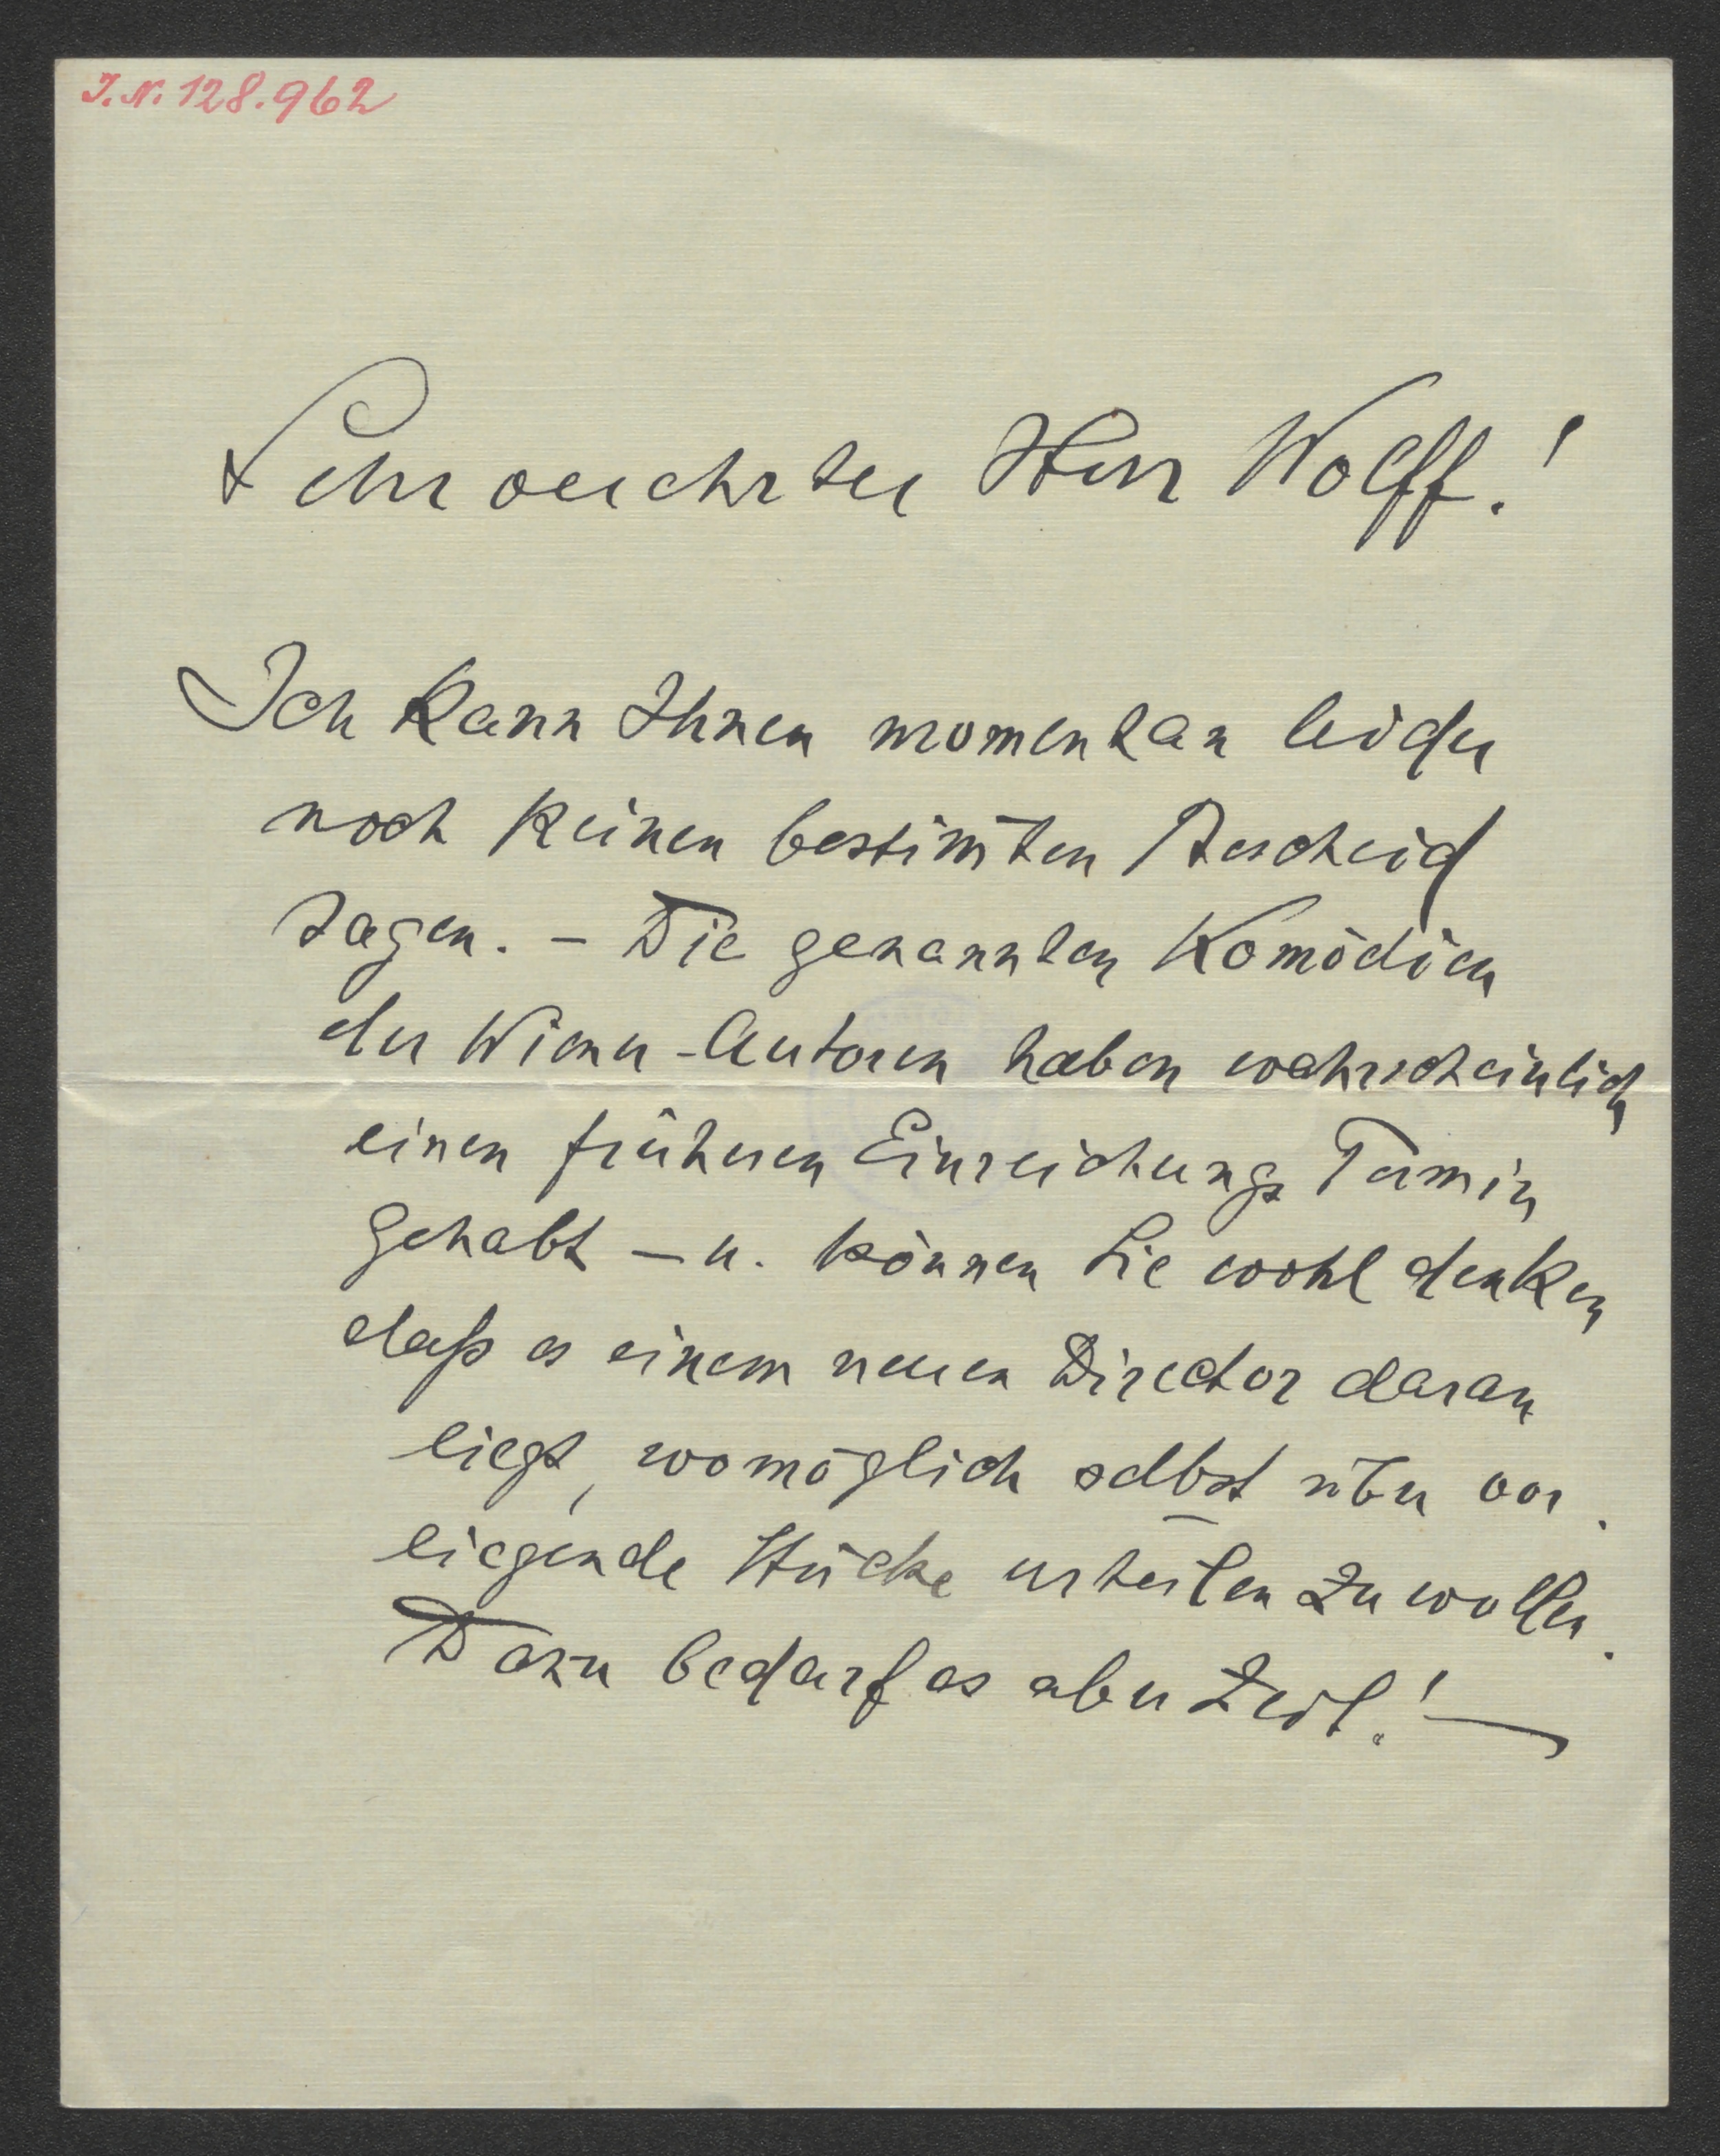 I.N. 128.962
Sehr verehrter Herr Wolff!
Ich kann Ihnen momentan leider
noch keinen bestim̄ten Bescheid
sagen. – Die genannten Komödien
der Wiener-Autoren haben wahrscheinlich
einen früheren Einreichungs Termin
gehabt – u. können Sie wohl denken
daß es einem neuen Director daran
liegt, womöglich selbst über vor-
liegende Stücke urteilen zu wollen.
Dazu bedarf es aber Zeit! –